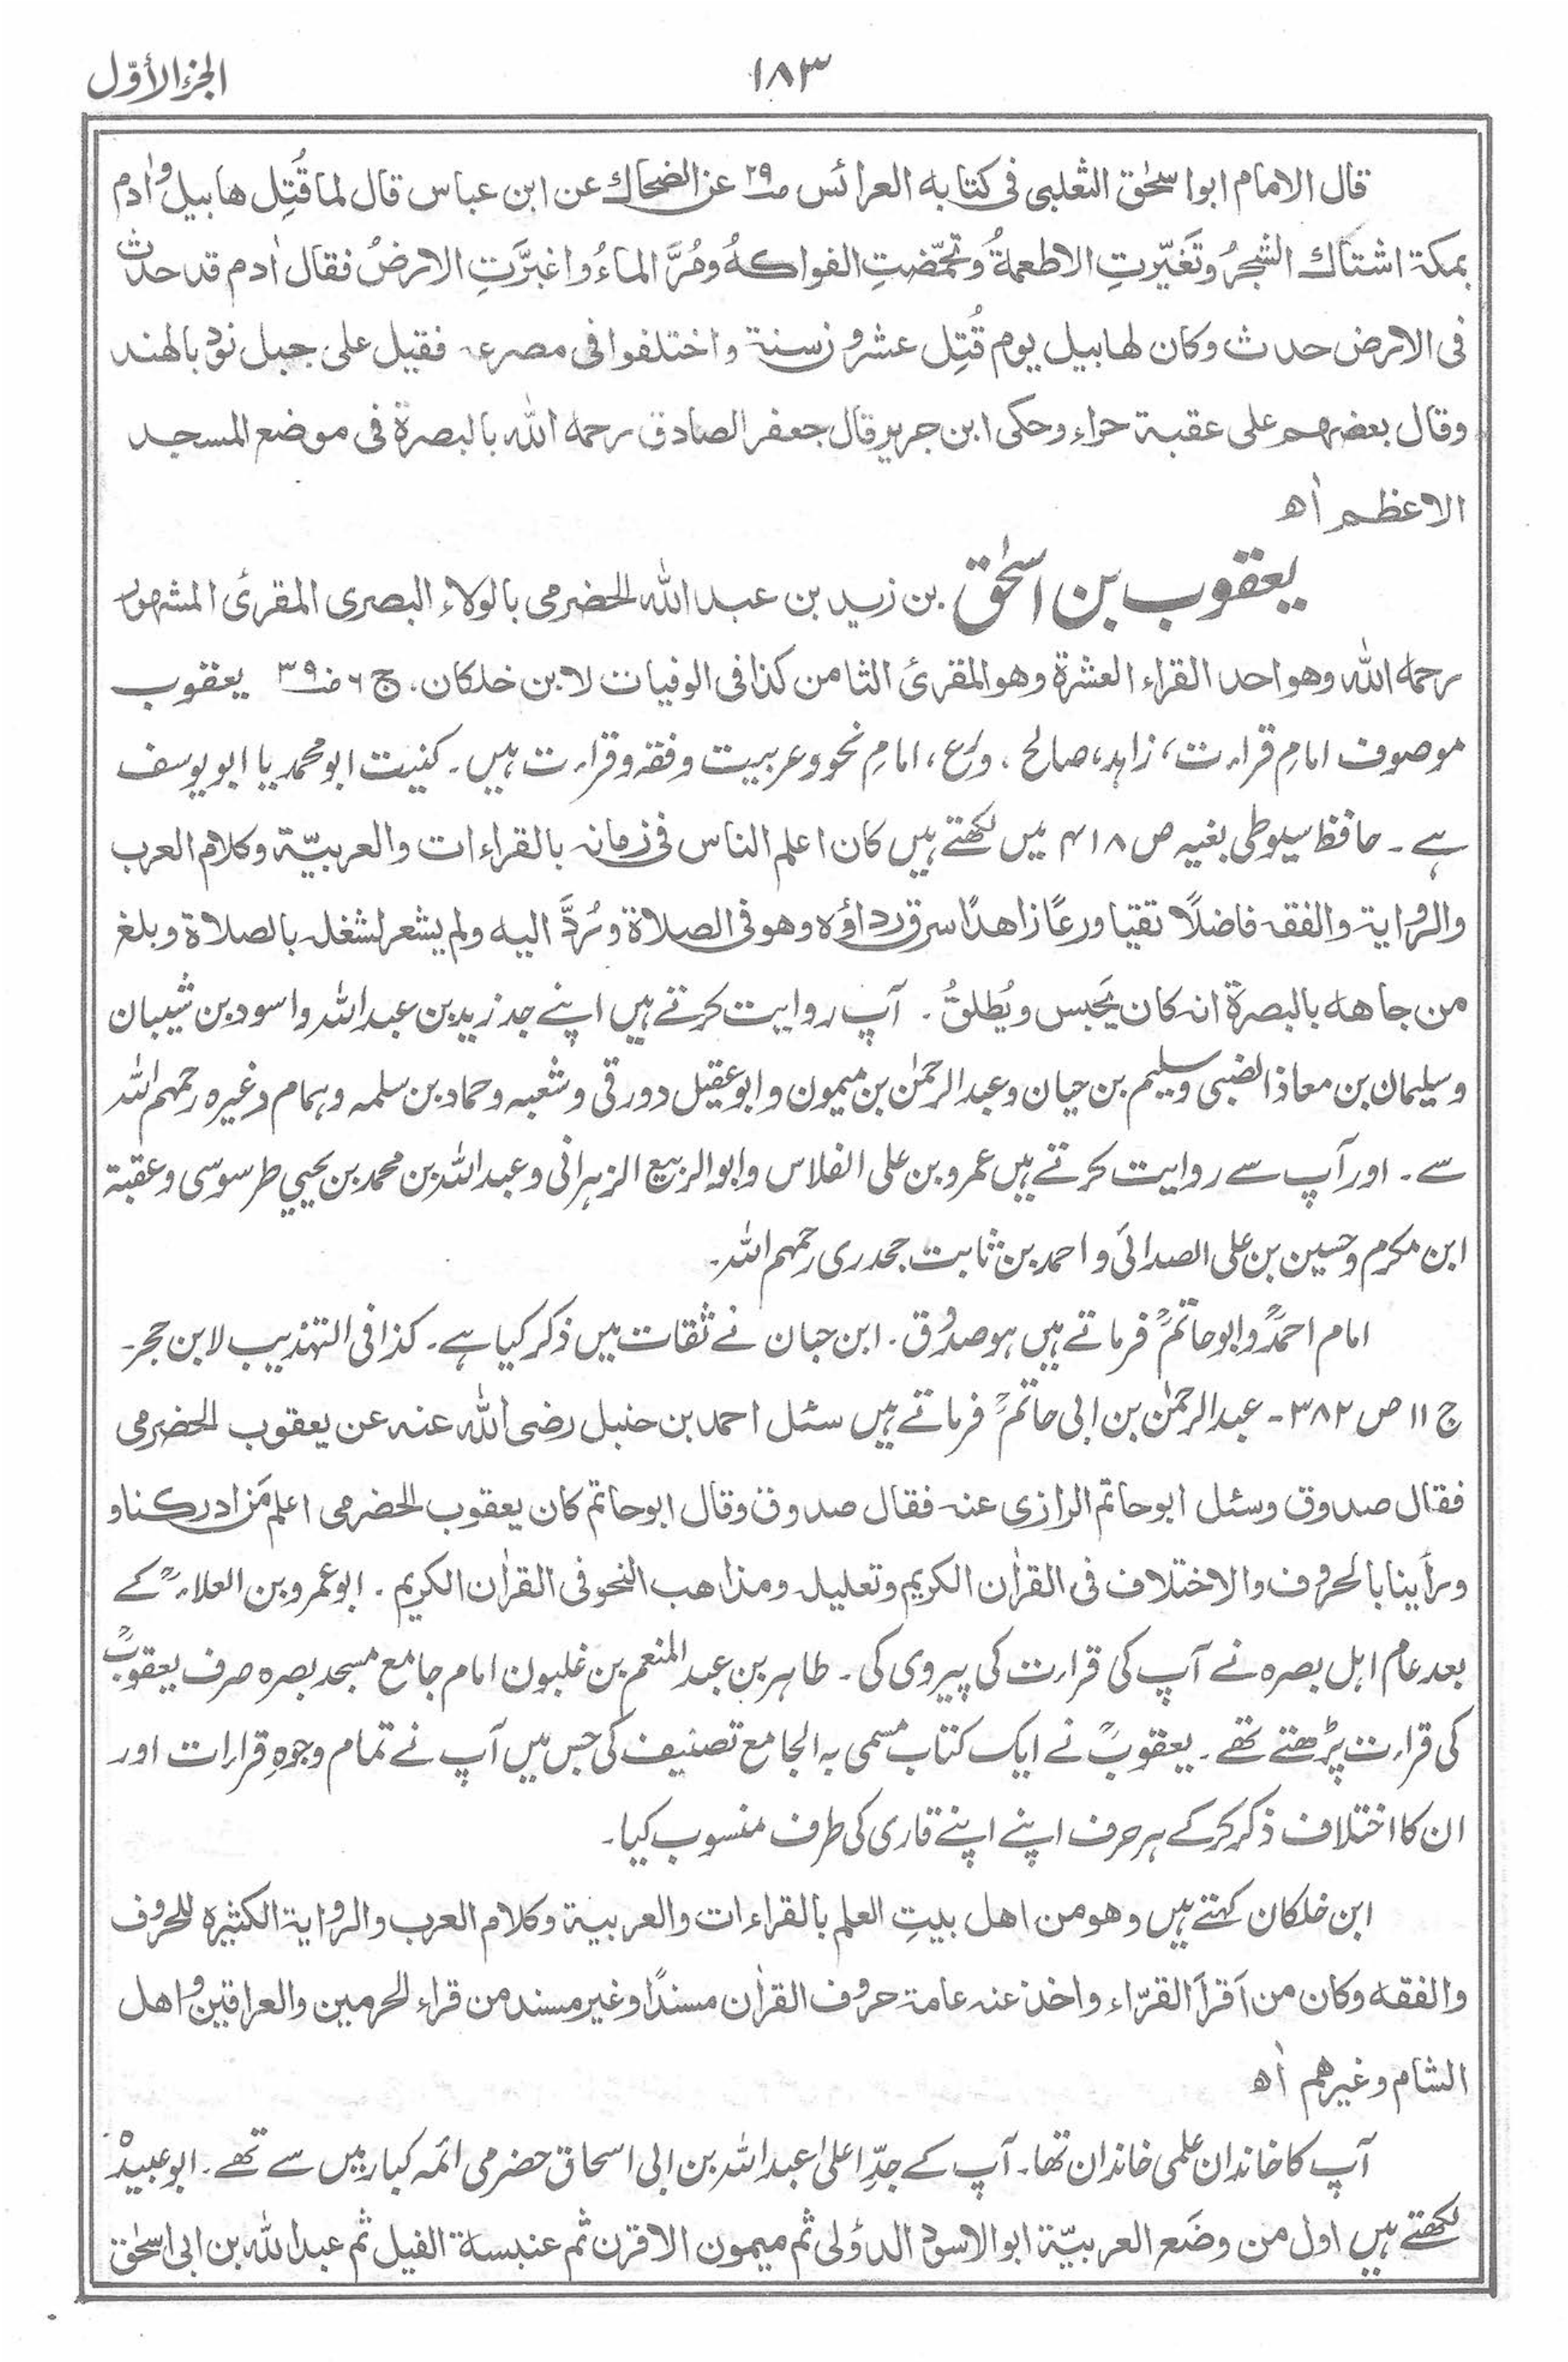 ۱۸۳
الجزء الأوّل
قال الامام ابو اسحٰق الثعلبی فی کتابه العرائس صـ۲۹ عن الضحاك عن ابن عباس قال لما قُتِل هابیل واٰدم
بمکة اشتاك الشجرُ وتَغیّرتِ الاطعمةُ وتحمّضتِ الفواکهُ ومُرَّ الماءُ واغبرَّتِ الارضُ فقال اٰدم قد حدث
فی الارض حدث وکان لهابیل یوم قُتِل عشرون سنة واختلفوا فی مصرعه فقیل علی جبل نود بالهند
وقال بعضهم علی عقبة حراء وحکی ابن جریر قال جعفر الصادق رحمه الله بالبصرة فی موضع المسجد
الاعظم اٰھ
یعقوب بن اسحٰق بن زید بن عبد الله الحضرمی بالولاء البصری المقرئ المشهور
رحمه الله وهو احد القراء العشرة وهو المقرئ الثامن کذا فی الوفیات لابن خلکان. ج ۶ صـ۳۹ یعقوب
موصوف امامِ قراءت، زاہد، صالح، ورع، امامِ نحو وعربیت وفقہ وقراءت ہیں۔ کنیت ابو محمد یا ابو یوسف
ہے۔ حافظ سیوطی بغیہ ص ۴۱۸ میں لکھتے ہیں کان اعلم الناس فی زمانہ بالقراءات والعربیّة وکلام العرب
والروایة والفقه فاضلًا تقیا ورعًا زاهدًا سرق رداؤه وهو فی الصلاة ورُدَّ الیه ولم یشعر لشغله بالصلاة وبلغ
من جاهه بالبصرة انه کان یَحبس ویُطلقُ۔ آپ روایت کرتے ہیں اپنے جد زید بن عبد اللہ واسود بن شیبان
وسلیمان بن معاذ الضبی وسلیم بن حیان وعبد الرحمٰن بن میمون وابو عقیل دورقی وشعبہ وحماد بن سلمہ وہمام وغیرہ رحمہم اللہ
سے۔ اور آپ سے روایت کرتے ہیں عمرو بن علی الفلاس وابو الربیع الزہرانی وعبد اللہ بن محمد بن یحییٰ طرسوسی وعقبة
ابن مکرم وحسین بن علی الصدائی واحمد بن ثابت جحدری رحمہم اللہ۔
امام احمدؒ وابو حاتمؒ فرماتے ہیں ہو صدوق۔ ابن حبان نے ثقات میں ذکر کیا ہے۔ کذا فی التہذیب لابن حجر۔
ج ۱۱ ص ۳۸۲۔ عبد الرحمٰن بن ابی حاتمؒ فرماتے ہیں سئل احمد بن حنبل رضی الله عنه عن یعقوب الحضرمی
فقال صدوق وسئل ابو حاتم الرازی عنه فقال صدوق وقال ابو حاتم کان یعقوب الحضرمی اعلم مَن ادرکنا و
ورأینا بالحروف والاختلاف فی القراٰن الکریم وتعلیله ومذاهب النحو فی القراٰن الکریم۔ ابو عمرو بن العلاءؒ کے
بعد عام اہل بصرہ نے آپ کی قراءت کی پیروی کی۔ طاہر بن عبد المنعم بن غلبون امام جامع مسجد بصرہ صرف یعقوبؒ
کی قراءت پڑھتے تھے۔ یعقوبؒ نے ایک کتاب مسمی بہ الجامع تصنیف کی جس میں آپ نے تمام وجوہِ قراءات اور
ان کا اختلاف ذکر کرکے ہر حرف اپنے اپنے قاری کی طرف منسوب کیا۔
ابن خلکان کہتے ہیں وهو من اهل بیتِ العلم بالقراءات والعربیة وکلام العرب والروایة الکثیرہ للحروف
والفقه وکان من اَقرأ القرّاء واخذ عنه عامة حروف القراٰن مسندًا وغیر مسند من قراء الحرمین والعراقین واهل
الشام وغیرهم اٰھ
آپ کا خاندان علمی خاندان تھا۔ آپ کے جدِّ اعلیٰ عبد اللہ بن ابی اسحاق حضرمی ائمہ کبار میں سے تھے۔ ابو عبیدہؒ
لکھتے ہیں اول من وضَع العربیّة ابو الاسود الدؤلی ثم میمون الاقرن ثم عنبسة الفیل ثم عبد الله بن ابی اسحٰق